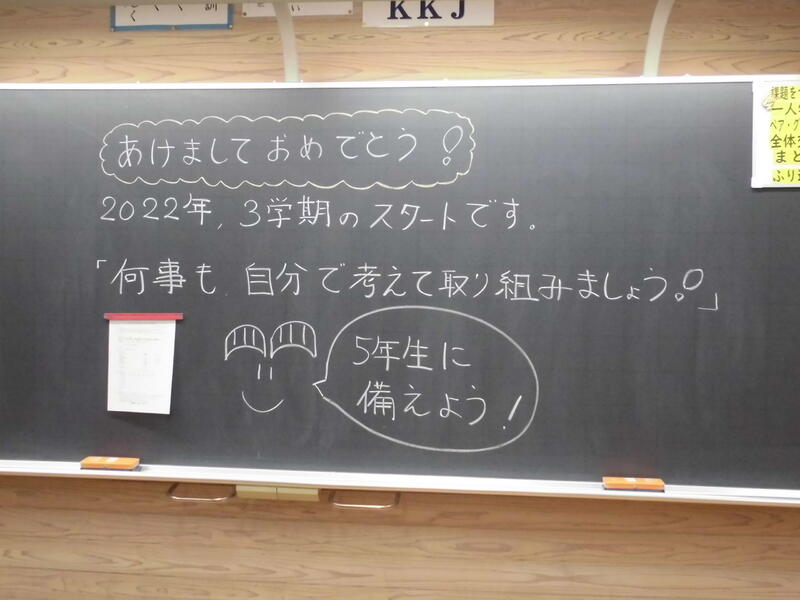 訓
KKJ
あけましておめでとう!
2022年, 3学期のスタートです。
「何事も, 自分で考えて取り組みましょう!」
5年生に
備えよう!
課題を
一人
ペア・グ
全体
まと
ふり